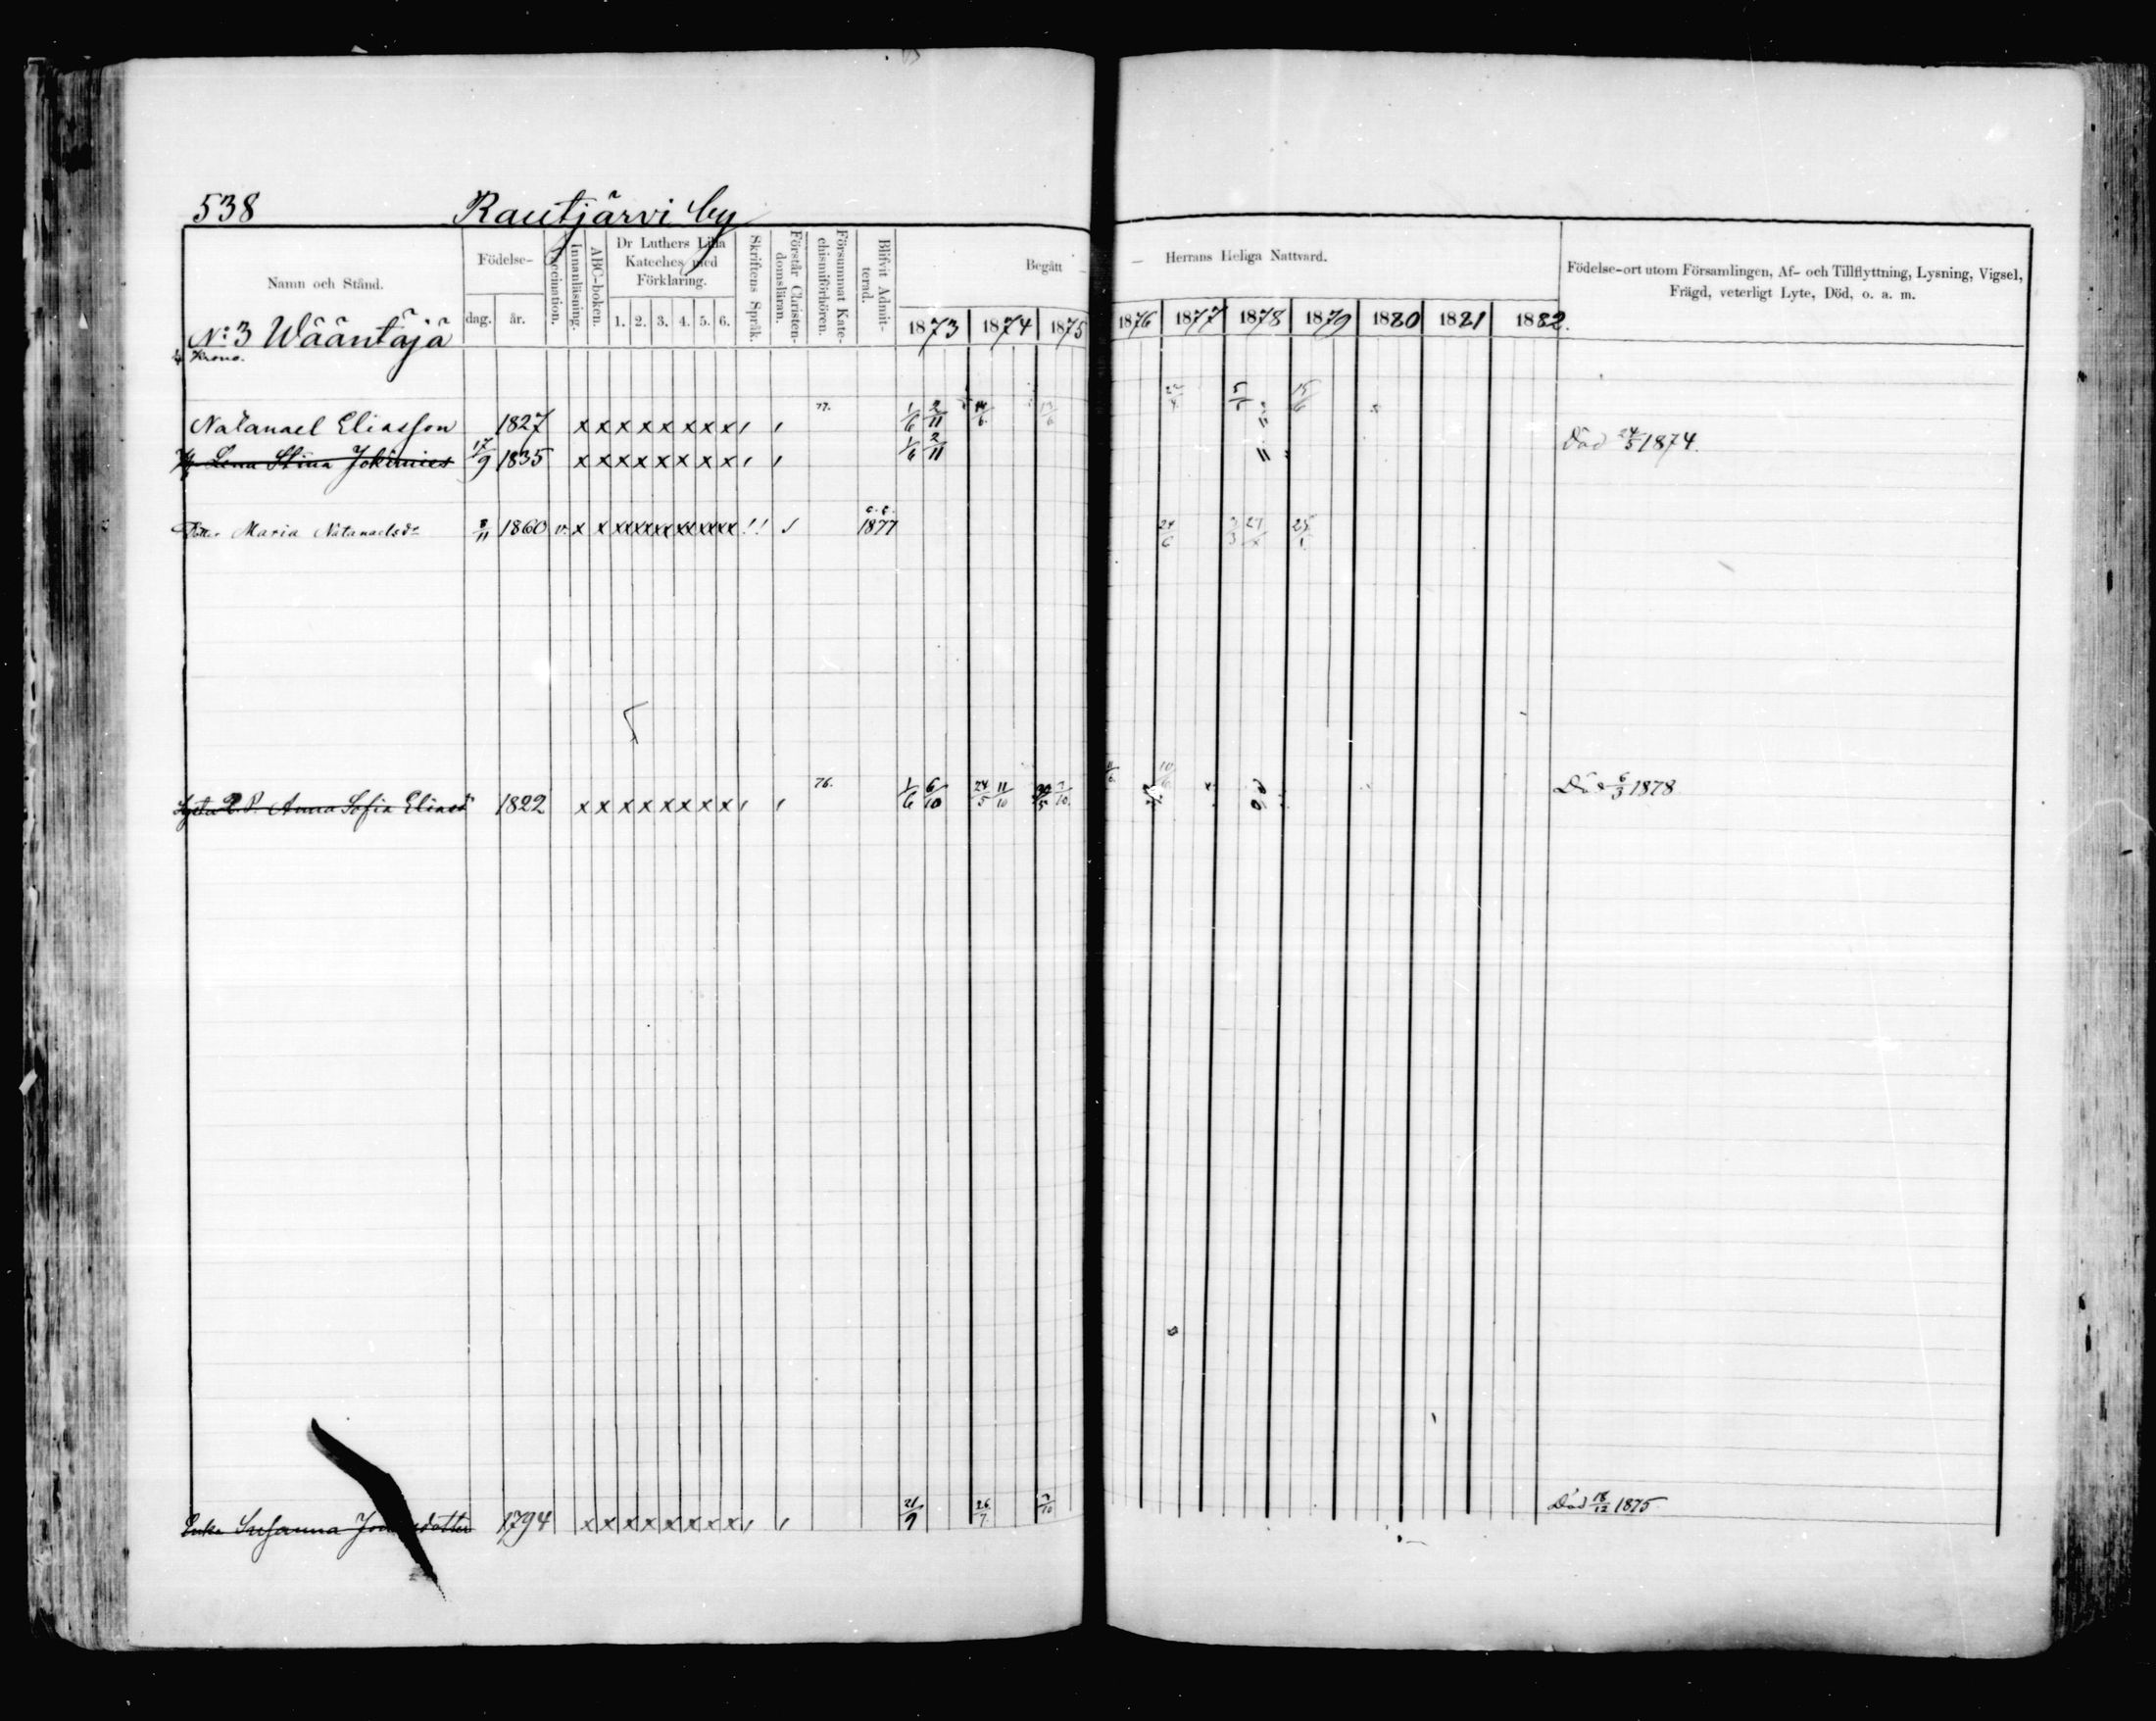 538 Rautjärvi by
Namn och Stånd.
Födelse-
dag. år.
Vaccination.
Innanläsning.
ABC-boken.
Dr Luthers Lilla
Kateches med
Förklaring.
1. 2. 3. 4. 5. 6.
Skriftens Språk.
Förstår Christen-
domsläran.
Försummat Kate-
chismiförhören.
Blifvit Admit-
terad.
Begått
Herrans Heliga Nattvard.
1873 1874 1875 1876 1877 1878 1879 1880 1881 1882.
Födelse-ort utom Församlingen, Af- och Tillflyttning, Lysning, Vigsel,
Frägd, veterligt Lyte, Död, o. a. m.
N:3 Wääntäjä
Krono.
77.
Natanael Eliasson 1827 x x x x x x x x 1/6 2/11
Lena Stina Jokimies 17/9 1835 x x x x x x x x 1/6 2/11 Död 24/5 1874.
Dotter Maria Natanaelsdr 8/11 1860 v. x x xx xx xx xx xx xx !! 1877 24/6 25/1
76.
Anna Sofia Eliasdr 1822 x x x x x x x x 1/6 6/10 24/5 11/10 Död 6/3 1878
Enka Susanna 1794 x x x x x x x x 21/9 26/7 Död 18/12 1875